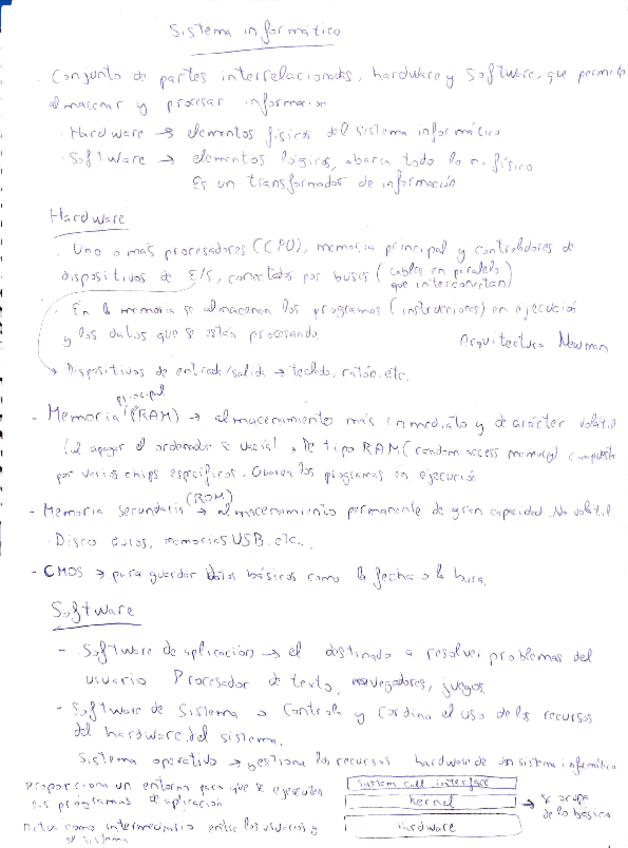 Sistema informático
. Conjunto de partes interrelacionadas, hardware y software, que permite
almacenar y procesar información
. Hardware → elementos físicos del sistema informático
. Software → elementos lógicos, abarca todo lo n. físico
Es un transformador de información
Hardware
. Uno o más procesadores (CPU), memoria principal y controladores de
dispositivos de E/S, conectados por buses (cables en paralelo
que interconectan)
. En la memoria se almacenan los programas (instrucciones) en ejecución
y los datos que se están procesando.
Arquitectura Newman
Dispositivos de entrada/salida → teclado, ratón, etc.
- Memoria principal (RAM) → almacenamiento más inmediato y de carácter volátil
(al apagar el ordenador se vacía). De tipo RAM (random access memory) compuesta
por varios chips específicos. Guarda los programas en ejecución
- Memoria secundaria (ROM) → almacenamiento permanente de gran capacidad. No volátil
. Disco duros, memorias USB. etc..
- CMOS → para guardar datos básicos como la fecha o la hora.
Software
- Software de aplicación → el destinado a resolver problemas del
usuario Procesador de texto, navegadores, juegos.
- Software de Sistema → Controla y cordina el uso de los recursos
del hardware del sistema.
Sistema operativo → gestiona los recursos hardware de un sistema informático
Proporciona un entorno para que se ejecuten
los programas de aplicación
Actua como intermediario entre los usuarios y
el sistema
System call interface
Kernel
Hardware
→ se ocupa
de lo básico